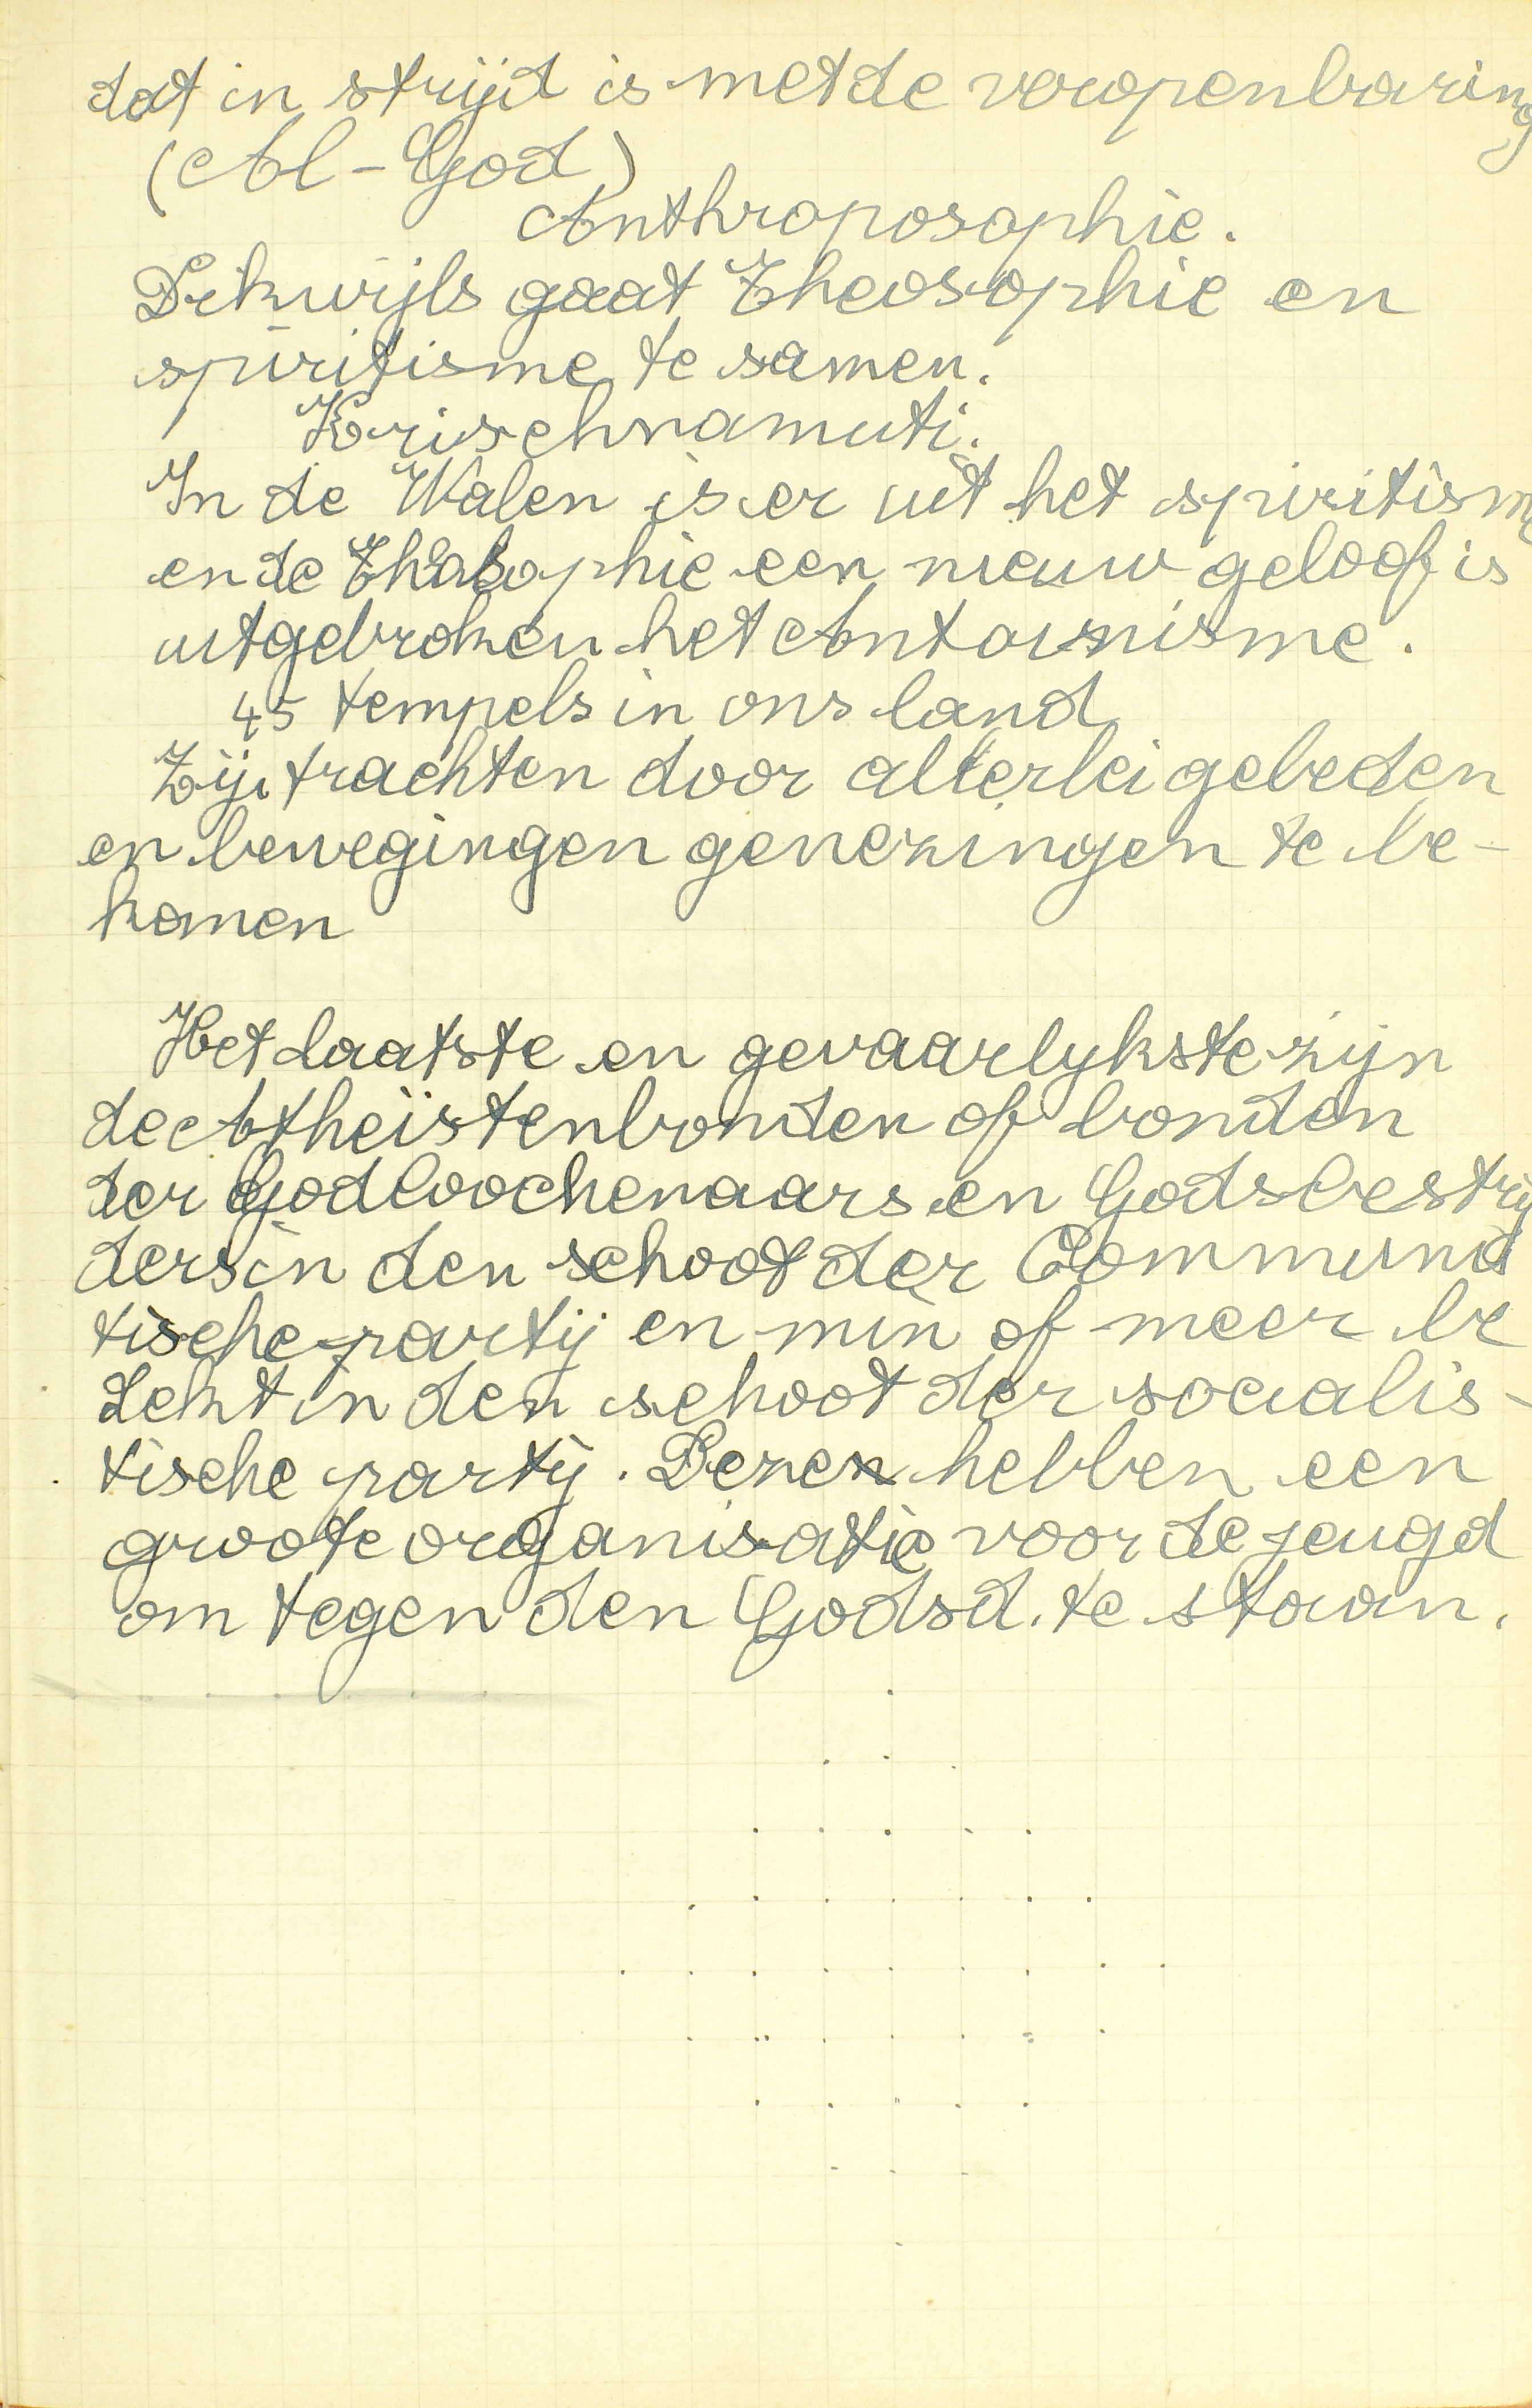 dat in strijd is met de veropenbaring
(Al-God)
Anthroposophie.
Dikwijls gaat Theosophie en
spiritisme te samen.
Krischnamuti.
In de Walen is er uit het spiritisme
en de Theosophie een nieuw geloof is
uitgebroken het Antoinisme.
45 tempels in ons land
Zij trachten door allerlei gebeden
en bewegingen genezingen te be-
komen
Het laatste en gevaarlykste zijn
de Atheïstenbonden of bonden
der Godloochenaars en Godsbestrij
ders in den schoot der Communis
tische partij en min of meer be
dekt in den schoot der socialis-
tische partij. Dezen hebben een
groote organisatie voor de jeugd
om tegen den Godsd. te staan.